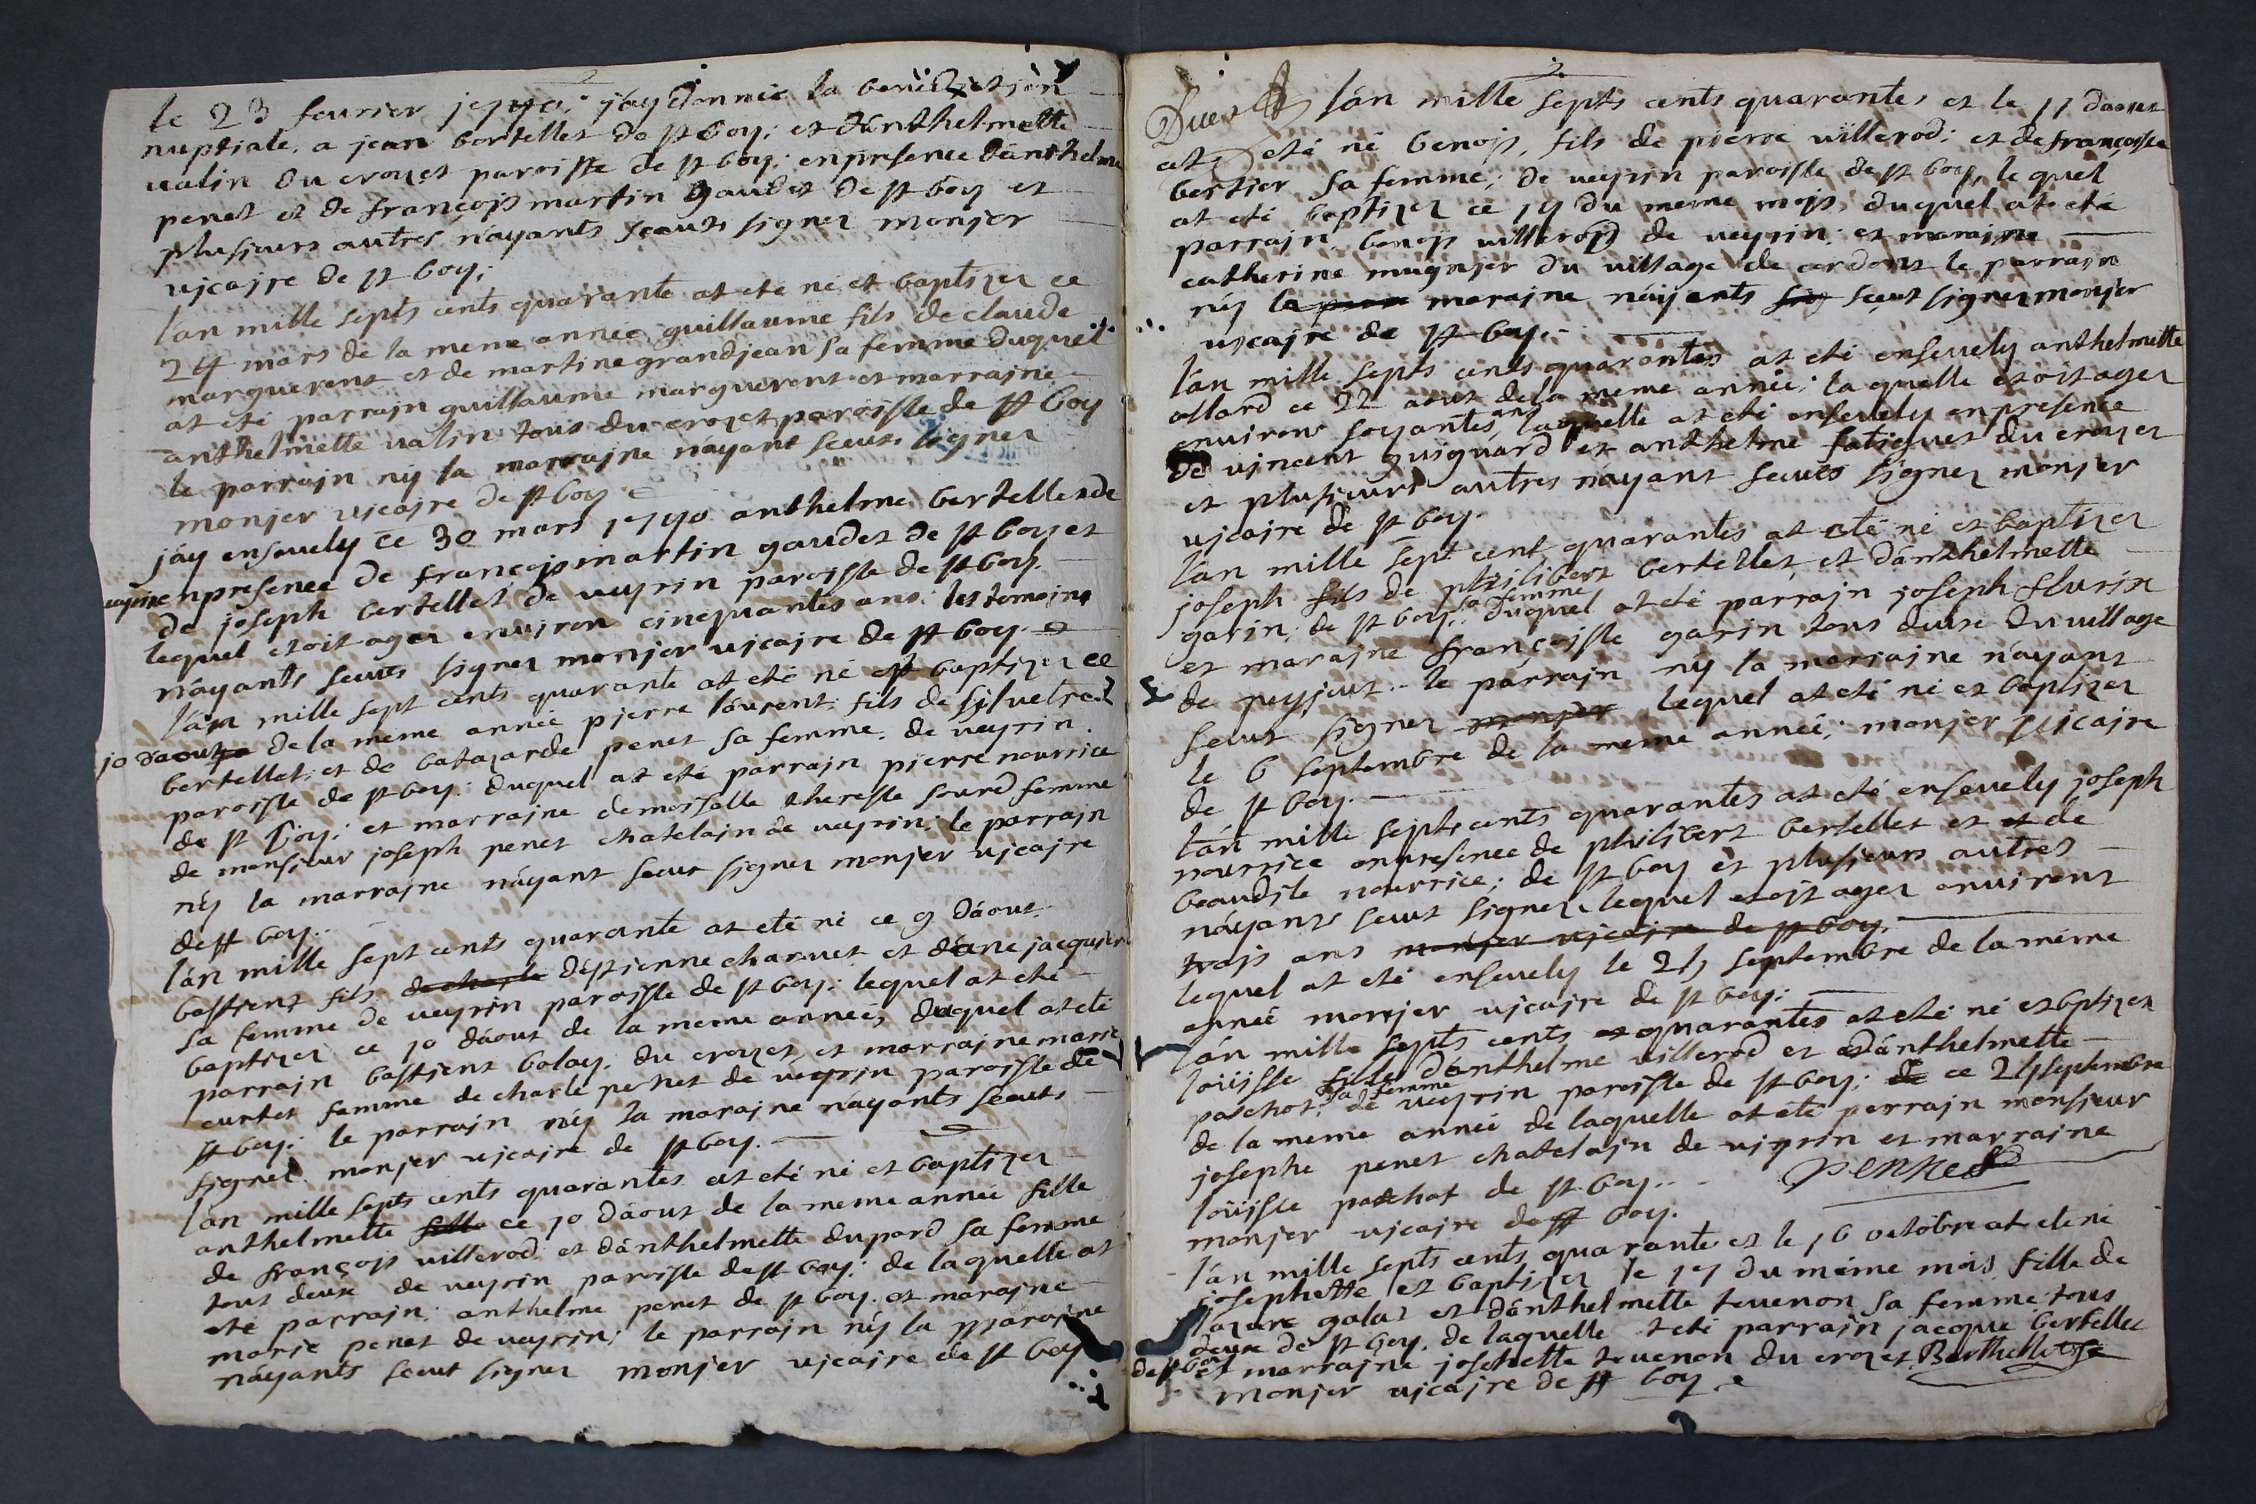 le 23 feurier 1740; jay donnie la benediction
nuptiale, a jean bertellet de st boy; et dánthelmette
ualin du crozet paroisse de st boy; enpresence dánthelme
penet et de françois martin gaudet de st boy et
plusieurs autres náyants sceuts signer monjer
vicaire de st boy;
lan mille septs cents quarante at eté né et baptizer ce
24 mars de la meme année guillaume fils de claude
marguerent et de martine grandjean sa femme duquel
at eté parrain guillaume marguerent et marraine
anthelmette ualin tous du crozet paroisse de st boy
le parrain ny la marraine náyant sceuts signer
monjer vicaire de st boy
jáy enseuely ce 30 mars 1740 anthelme bertellet de
ueyrin enpresence de françois martin gaudet de st boy et
de joseph bertellet de ueyrin paroisse de st boy
lequel etoit ager environ cinquantes ans; les temoins
náyants sceuts signer monjer vicaire de st boy
lán mille sept cents quarante at eté né et baptizer ce
10 daoust de la meme année pierre láurent; fils de siluetre
bertellet; et de batazarde penet sa femme, de ueyrin
paroisse de st boy; duquel at eté parrain pierre nourrice
de st boy; et marraine demoiselle theresse sourd femme
de monsieur joseph penet chatelain de ueyrin; le parrain
ny la marraine náyant sceut signer monjer vicaire
de st boy..
lán mille sept cents quarante at eté né ce 9 dáout
bastient fils de charle destienne charuet et dáne jacquier
sa femme de ueyrin paroisse de st boy; lequel at eté
baptizer ce 10 dáout de la meme année, duquel at eté
parrain bastient bolay, du crozet, et marraine marie
curtet femme de charle penet de ueyrin paroisse de
st boy; le parrain ny la maraine náyants sceuts
signer monjer vicaire de st boy.
lán mille septs cents quarantes at eté né et baptizer
anthelmette fille ce 10 dáout de la meme année fille
de françois uillerod et dánthelmette dupard sa femme
tout deux de ueyrin paroisse de st boy; de laquelle at
eté parrain; anthelme penet de st boy. et maraine
marie penet de ueyrin; le parrain ny la maraine
náyants sceut signer monjer vicaire de st boy
lán mille septs cents quarantes et le 17 daoust
at eté né benois, fils de pierre uillerod; et de françoisse
bertier sa femme; de ueyrin paroisse de st boy, le quel
at eté baptizer ce 17 du meme mois, duquel at eté
parrain benois uillerod de ueyrin; et maraine
catherine mugnier du uillage de cerdont le parrain
ny la maraine náyants sceut signer monjer
vicaire de st boy.
lán mille septs cents quarantes at eté enseuely anthelmette
allard ce 22 aout dela meme année; la quelle etoit ager
environ soyantes ans laquelle at eté enseuely enpresence
de vincent guignard et anthelme fatiguet du crozet
et plusieurs autres náyant sceuts signer monjer
vicaire de st boy.
lán mille sept cent quarantes at eté né et baptizer
joseph fils de philibert bertellet, et dánthelmette
garin; de st boy; sa femme duquel at eté parrain joseph flurin
et maraine françoisse garin tous deux du uillage
de peyzieut.. le parrain ny la marraine náyant
sceut signer monjer lequel at eté né et baptizer
le 6 septembre de la meme année; monjer vicaire
de st boy.
lán mille septs cents quarantes at eté enseuely joseph
nourrice enpresence de philibert bertellet et et de
beaudile nourrice; de st boy et plusieurs autres
náyants sceut signer, lequel etoit ager environt
trois ans monjer vicaire de st boy.
lequel at eté enseuely le 21 septembre de la meme
année monjer vicaire de st boy;
lán mille septs cents et quarantes at eté né et baptizer
loüisse fille dánthelme uillerod et dánthelmette
paschot; sa femme de ueyrin paroisse de st boy; de ce 21 septembre
de la meme année de laquelle at eté parrain monsieur
josephe penet chatelain de uiyrin et marraine
loüisse paschot de st boy..
PENNET
monjer vicaire de st boy.
lán mille septs cents quarante et le 16 octobre at eté né
josephette et baptizer le 17 du méme mois fille de
lazare galat et dánthelmette teuenon sa femme, tous
deux de st boy, de laquelle at eté parrain jacque bertellet
de st boy et marraine josephette teuenon du crozet Berthellet
monjer vicaire de st boy